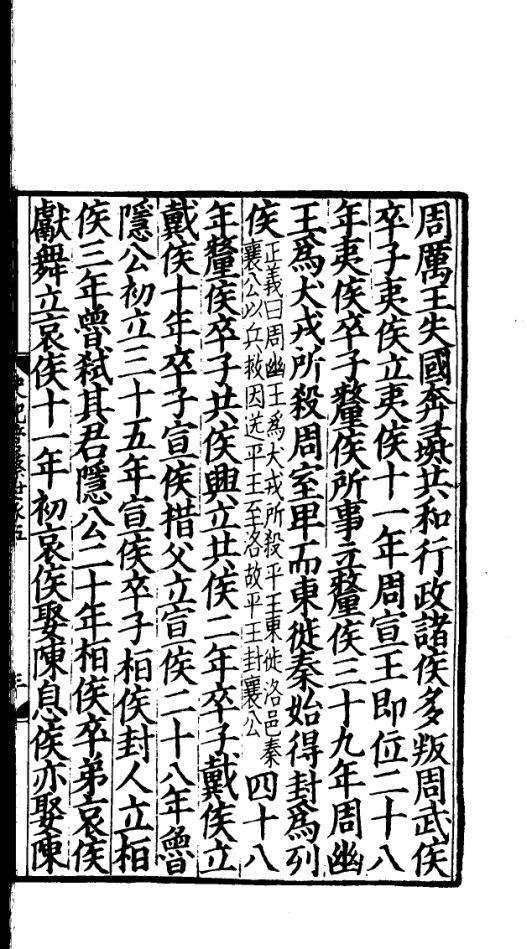 周厲王失國奔彘共和行政諸侯多叛周武侯
卒子夷侯立夷侯十一年周宣王即位二十八
年夷侯卒子釐侯所事立釐侯三十九年周幽
王爲犬戎所殺周室卑而東徙秦始得封爲列
侯
正義曰周幽王爲犬戎所殺平王東徙洛邑秦
襄公以兵救因送平王至洛故平王封襄公
四十八
年釐侯卒子共侯興立共侯二年卒子戴侯立
戴侯十年卒子宣侯措父立宣侯二十八年魯
隱公初立三十五年宣侯卒子桓侯封人立桓
侯三年魯弒其君隱公二十年桓侯卒弟哀侯
獻舞立哀侯十一年初哀侯娶陳息侯亦娶陳